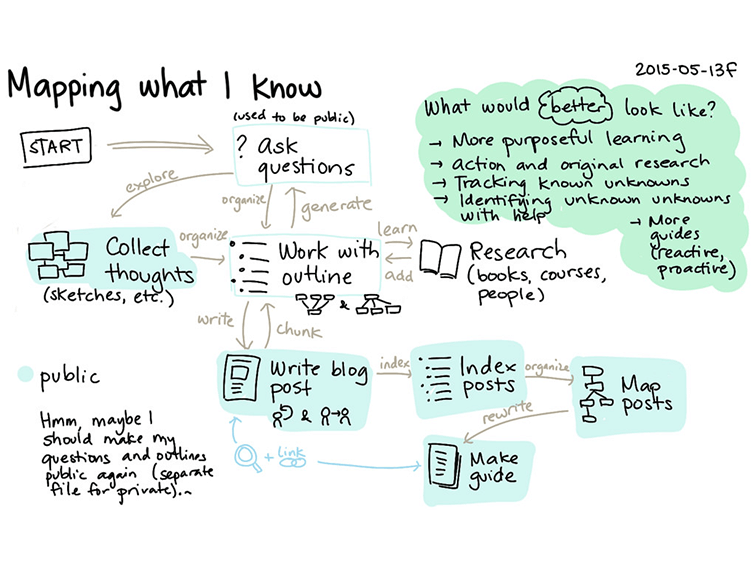 Mapping what I know
2015-05-13f
START
(used to be public)
? ask
questions
explore
organize
generate
Collect
thoughts
(sketches, etc.)
organize
Work with
outline
&
learn
add
Research
(books, courses,
people)
What would better look like?
→ More purposeful learning
→ action and original research
→ Tracking known unknowns
→ Identifying unknown unknowns
with help
→ More
guides
(reactive,
proactive)
write
chunk
Write blog
post
&
index
Index
posts
organize
Map
posts
rewrite
Make
guide
+ Link
public
Hmm, maybe I
should make my
questions and outlines
public again (separate
file for private)...